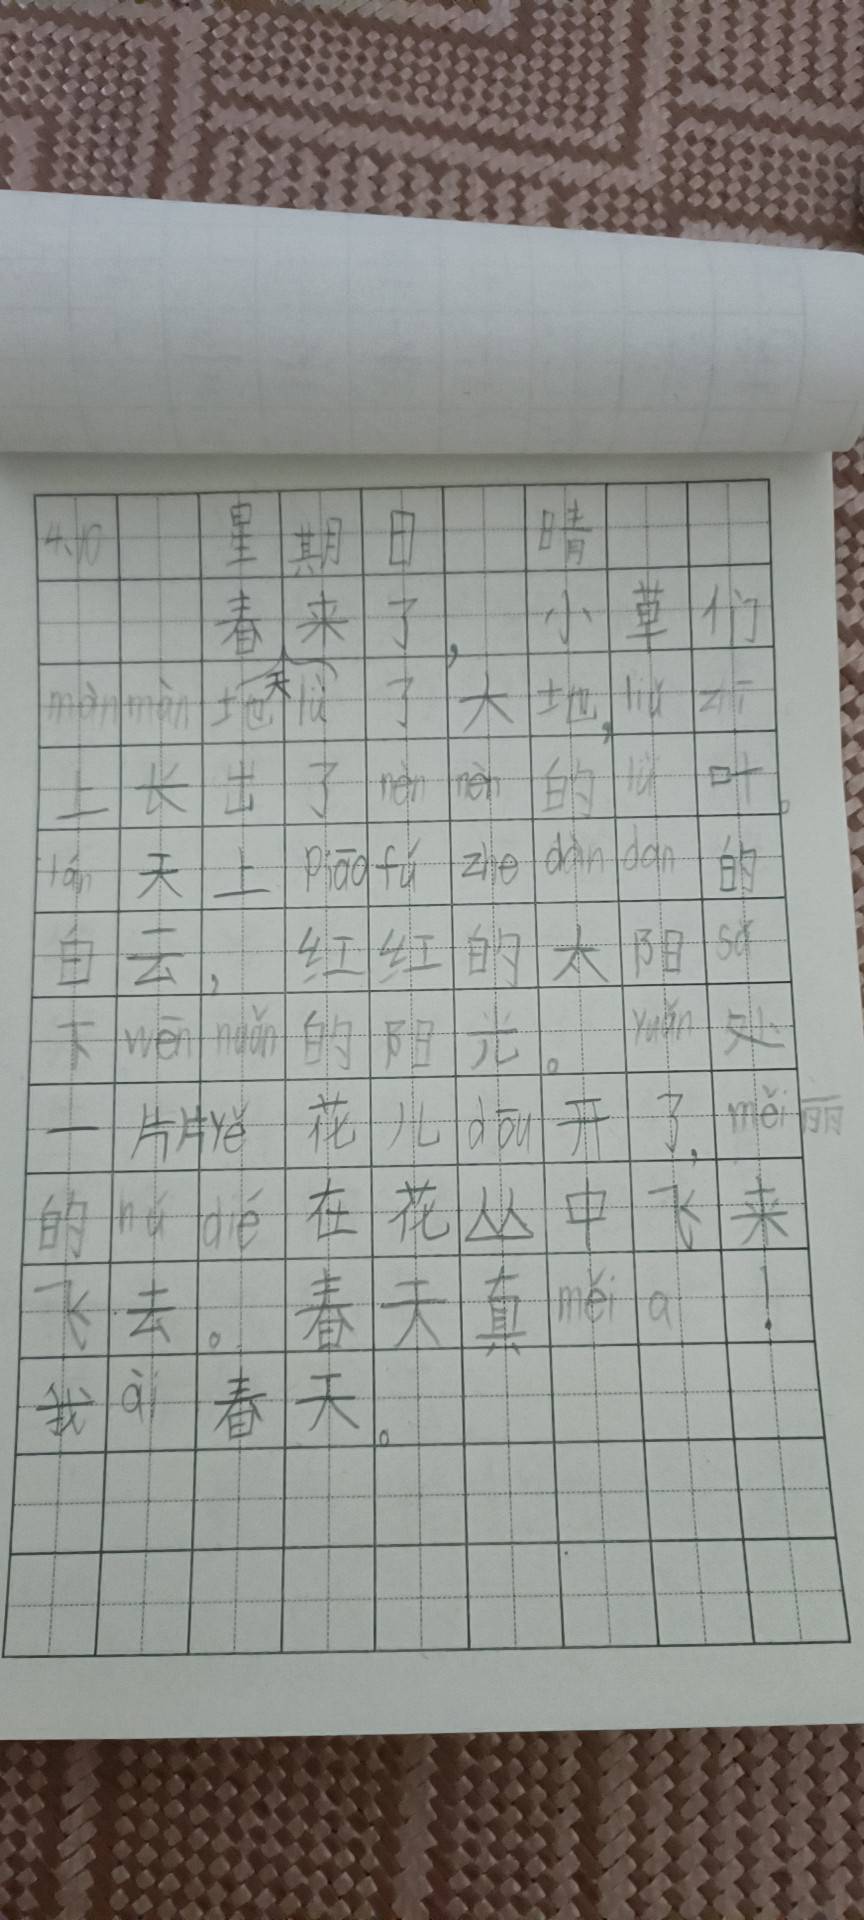 4.10 星期日 晴
春天来了，小草们
màn màn 地 lǜ 了大地，liǔ zhī
上长出了 nèn nèn 的 lǜ 叶。
lán 天上 piāo fú zhe dàn dàn 的
白云，红红的太阳 sǎ
下 wēn nuǎn 的阳光。yuǎn 处
一片片 yě 花儿 dōu 开了，měi 丽
的 hú dié 在花丛中飞来
飞去。春天真 měi a ！
我 ài 春天。